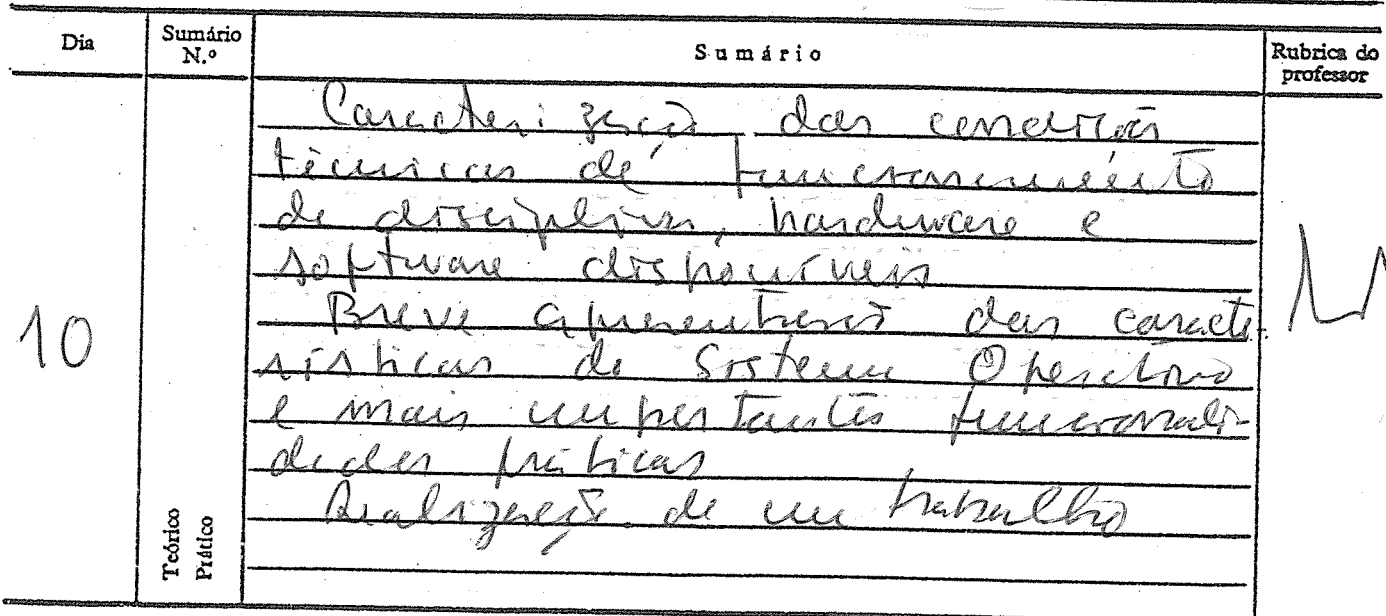 Dia
Sumário N.º
Sumário
Rubrica do professor
10
Teórico
Prático
Caracterização das condições
técnicas de funcionamento
de disciplina, hardware e
software disponíveis
Breve apresentação das caracte-
rísticas do Sistema Operativo
e mais importantes funcionali-
dades práticas
Realização de um trabalho